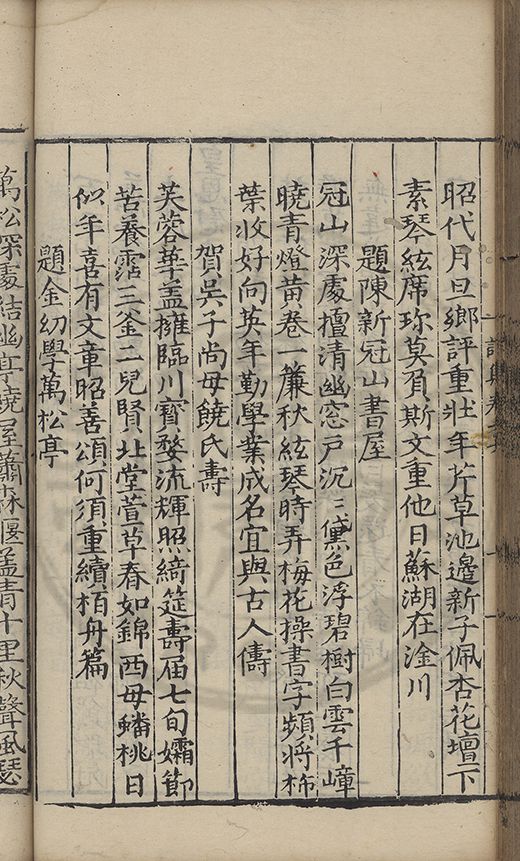 昭代月旦鄉評重壯年芹草池邊新子佩杏花壇下
素琴絃席珎莫負斯文重他日蘇湖在淦川
題陳新冠山書屋
冠山深處擅清幽窓户沉〻黛色浮碧樹白雲千嶂
曉青燈黄卷一簾秋絃琴時弄梅花操書字頻將柿
葉收好向英年勤學業成名宜與古人儔
賀吴子尚母饒氏壽
芙蓉華盖擁臨川寳婺流輝照綺筵壽届七旬孀節
苦養霑三釜二兒賢北堂萱草春如錦西母蟠桃日
似年喜有文章昭善頌何須重續栢舟篇
題金幼學萬松亭
萬松深處結幽亭繞屋蕭森偃盖青十里秋聲風瑟